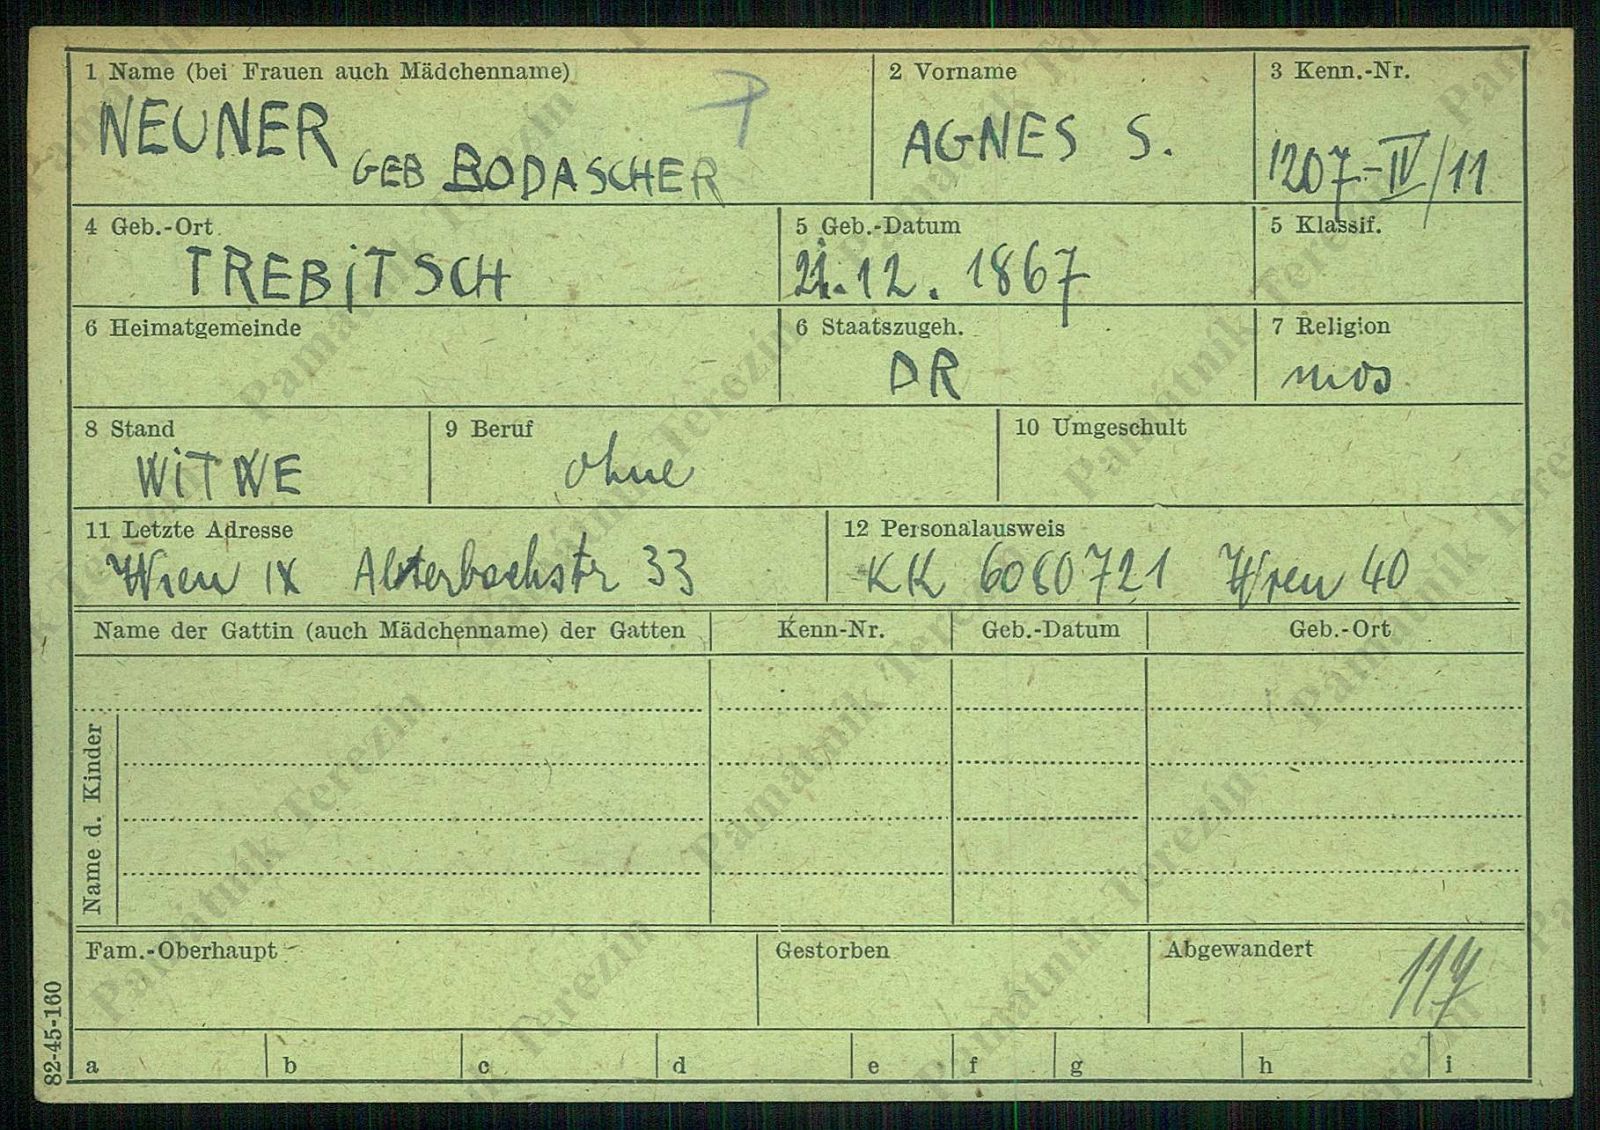 1 Name (bei Frauen auch Mädchenname)
NEUNER GEB BODASCHER
2 Vorname
AGNES S.
3 Kenn.-Nr.
1207-IV/11
4 Geb.-Ort
TREBITSCH
5 Geb.-Datum
21.12. 1867
5 Klassif.
6 Heimatgemeinde
6 Staatszugeh.
DR
7 Religion
mos
8 Stand
WITWE
9 Beruf
ohne
10 Umgeschult
11 Letzte Adresse
Wien IX 33
12 Personalausweis
KK 6080721 Wien 40
Name der Gattin (auch Mädchenname) der Gatten
Kenn-Nr.
Geb.-Datum
Geb.-Ort
Name d. Kinder
Fam.-Oberhaupt
Gestorben
Abgewandert
82-45-160
a b c d e f g h i
Památník Terezín